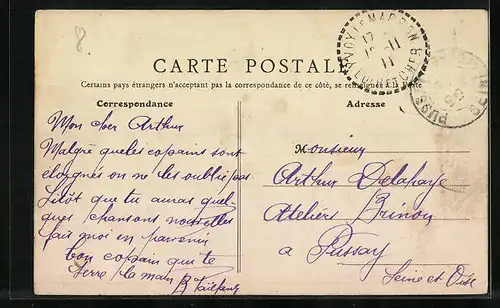 8
CARTE POSTALE
Certains pays étrangers n'acceptant pas la correspondance de ce côté, se renseigner à la Poste
Correspondance
Adresse
Mon cher Arthur
Malgré que les copains sont
éloygnés on ne les oublie pas
Sitôt que tu auras quel-
ques chansons nouvelles
fais moi en parvenir
bon copain qui te
serre la main
Monsieur
Arthur Delahaye
Ateliers Brinon
à Pussay
Seine et Oise
LOIR-ET-CHER
11